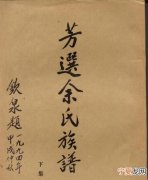 芳選余氏族譜
欽泉題
一九九四年
甲戌仲秋
下集